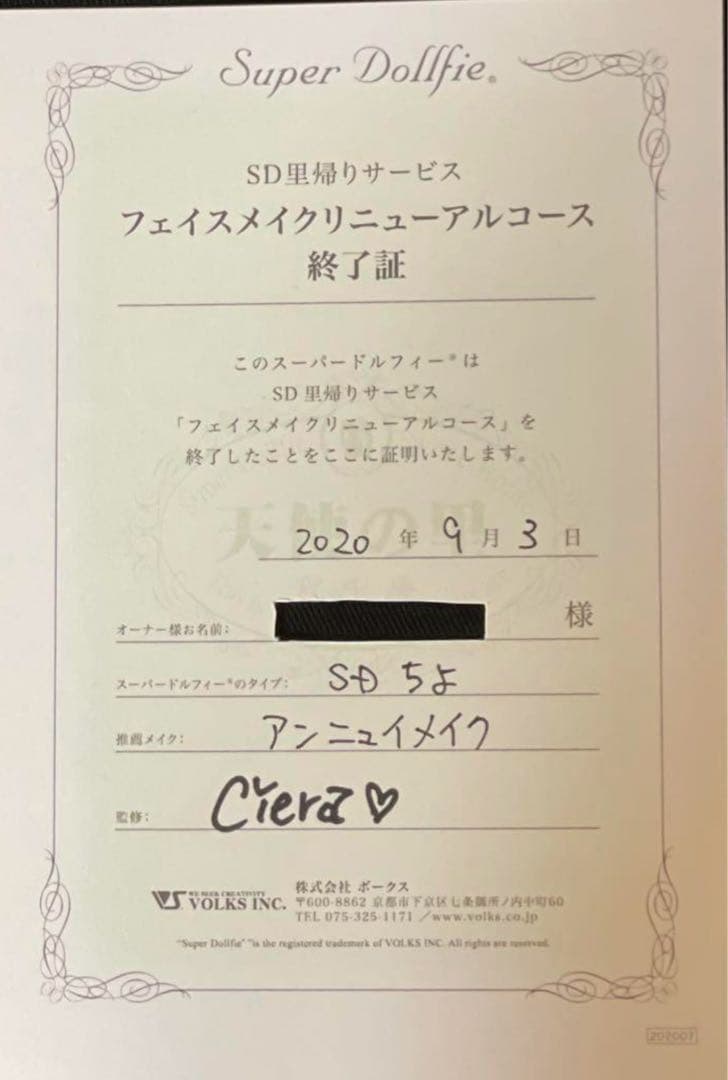 Super Dollfie®
SD里帰りサービス
フェイスメイクリニューアルコース
終了証
このスーパードルフィー®は
SD里帰りサービス
「フェイスメイクリニューアルコース」を
終了したことをここに証明いたします。
天使の里
2020 年 9 月 3 日
オーナー様お名前: 様
スーパードルフィー®のタイプ: SD ちよ
推薦メイク: アンニュイメイク
監修: Ciera♡
WE SEEK CREATIVITY
VOLKS INC.
株式会社 ボークス
〒600-8862 京都市下京区七条御所ノ内中町60
TEL 075-325-1171 /www.volks.co.jp
"Super Dollfie" is the registered trademark of VOLKS INC. All rights are reserved.
202007